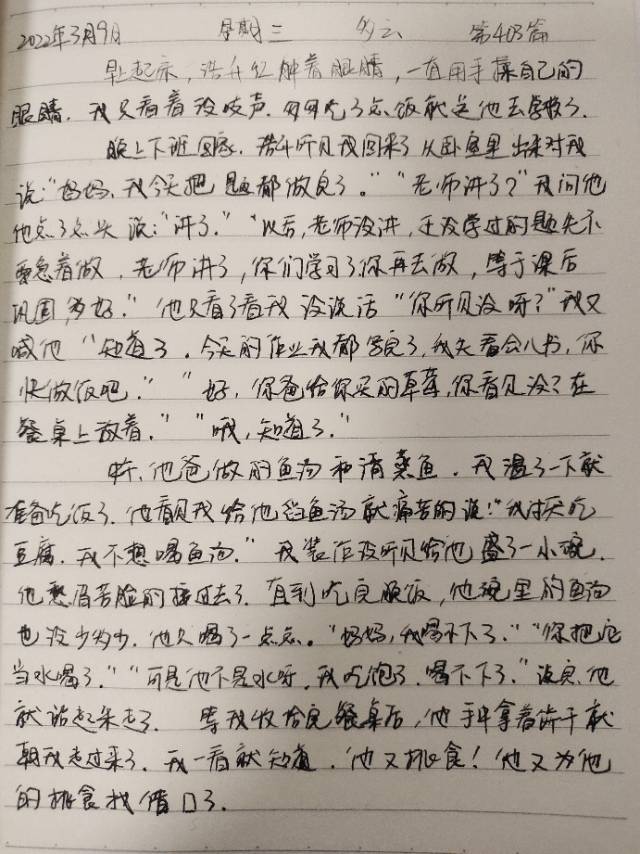 2022年3月9日 星期三 多云 第403篇
早起床,浩升红肿着眼睛,一直用手揉自己的
眼睛。我只看着没吱声。匆匆吃了点饭就送他去学校了。
晚上下班回家,浩升听见我回来了从卧室里出来对我
说:"妈妈,我今天把题都做完了。""老师讲了?"我问他
他点了点头说:"讲了。""以后,老师没讲,还没学过的题先不
要急着做,老师讲了,你们学习了你再去做,等于课后
巩固,多好。"他只看了看我没说话"你听见没呀?"我又
喊他"知道了。今天的作业我都写完了,我先看会儿书,你
快做饭吧。""好,你爸给你买的草莓,你看见没?在
餐桌上放着。""哦,知道了。"
中午,他爸做的鱼汤和清蒸鱼。我温了一下就
准备吃饭了。他看见我给他舀鱼汤就痛苦的说:"我讨厌吃
豆腐。我不想喝鱼汤。"我装作没听见给他盛了一小碗。
他愁眉苦脸的接过去了。直到吃完晚饭,他碗里的鱼汤
也没少多少。他只喝了一点点。"妈妈,我喝不下了。""你把它
当水喝了。""可是他不是水呀。我吃饱了,喝不下了。"说完,他
就站起来走了。等我收拾完餐桌后,他手中拿着饼干就
朝我走过来了。我一看就知道,他又挑食!他又为他
的挑食找借口了。